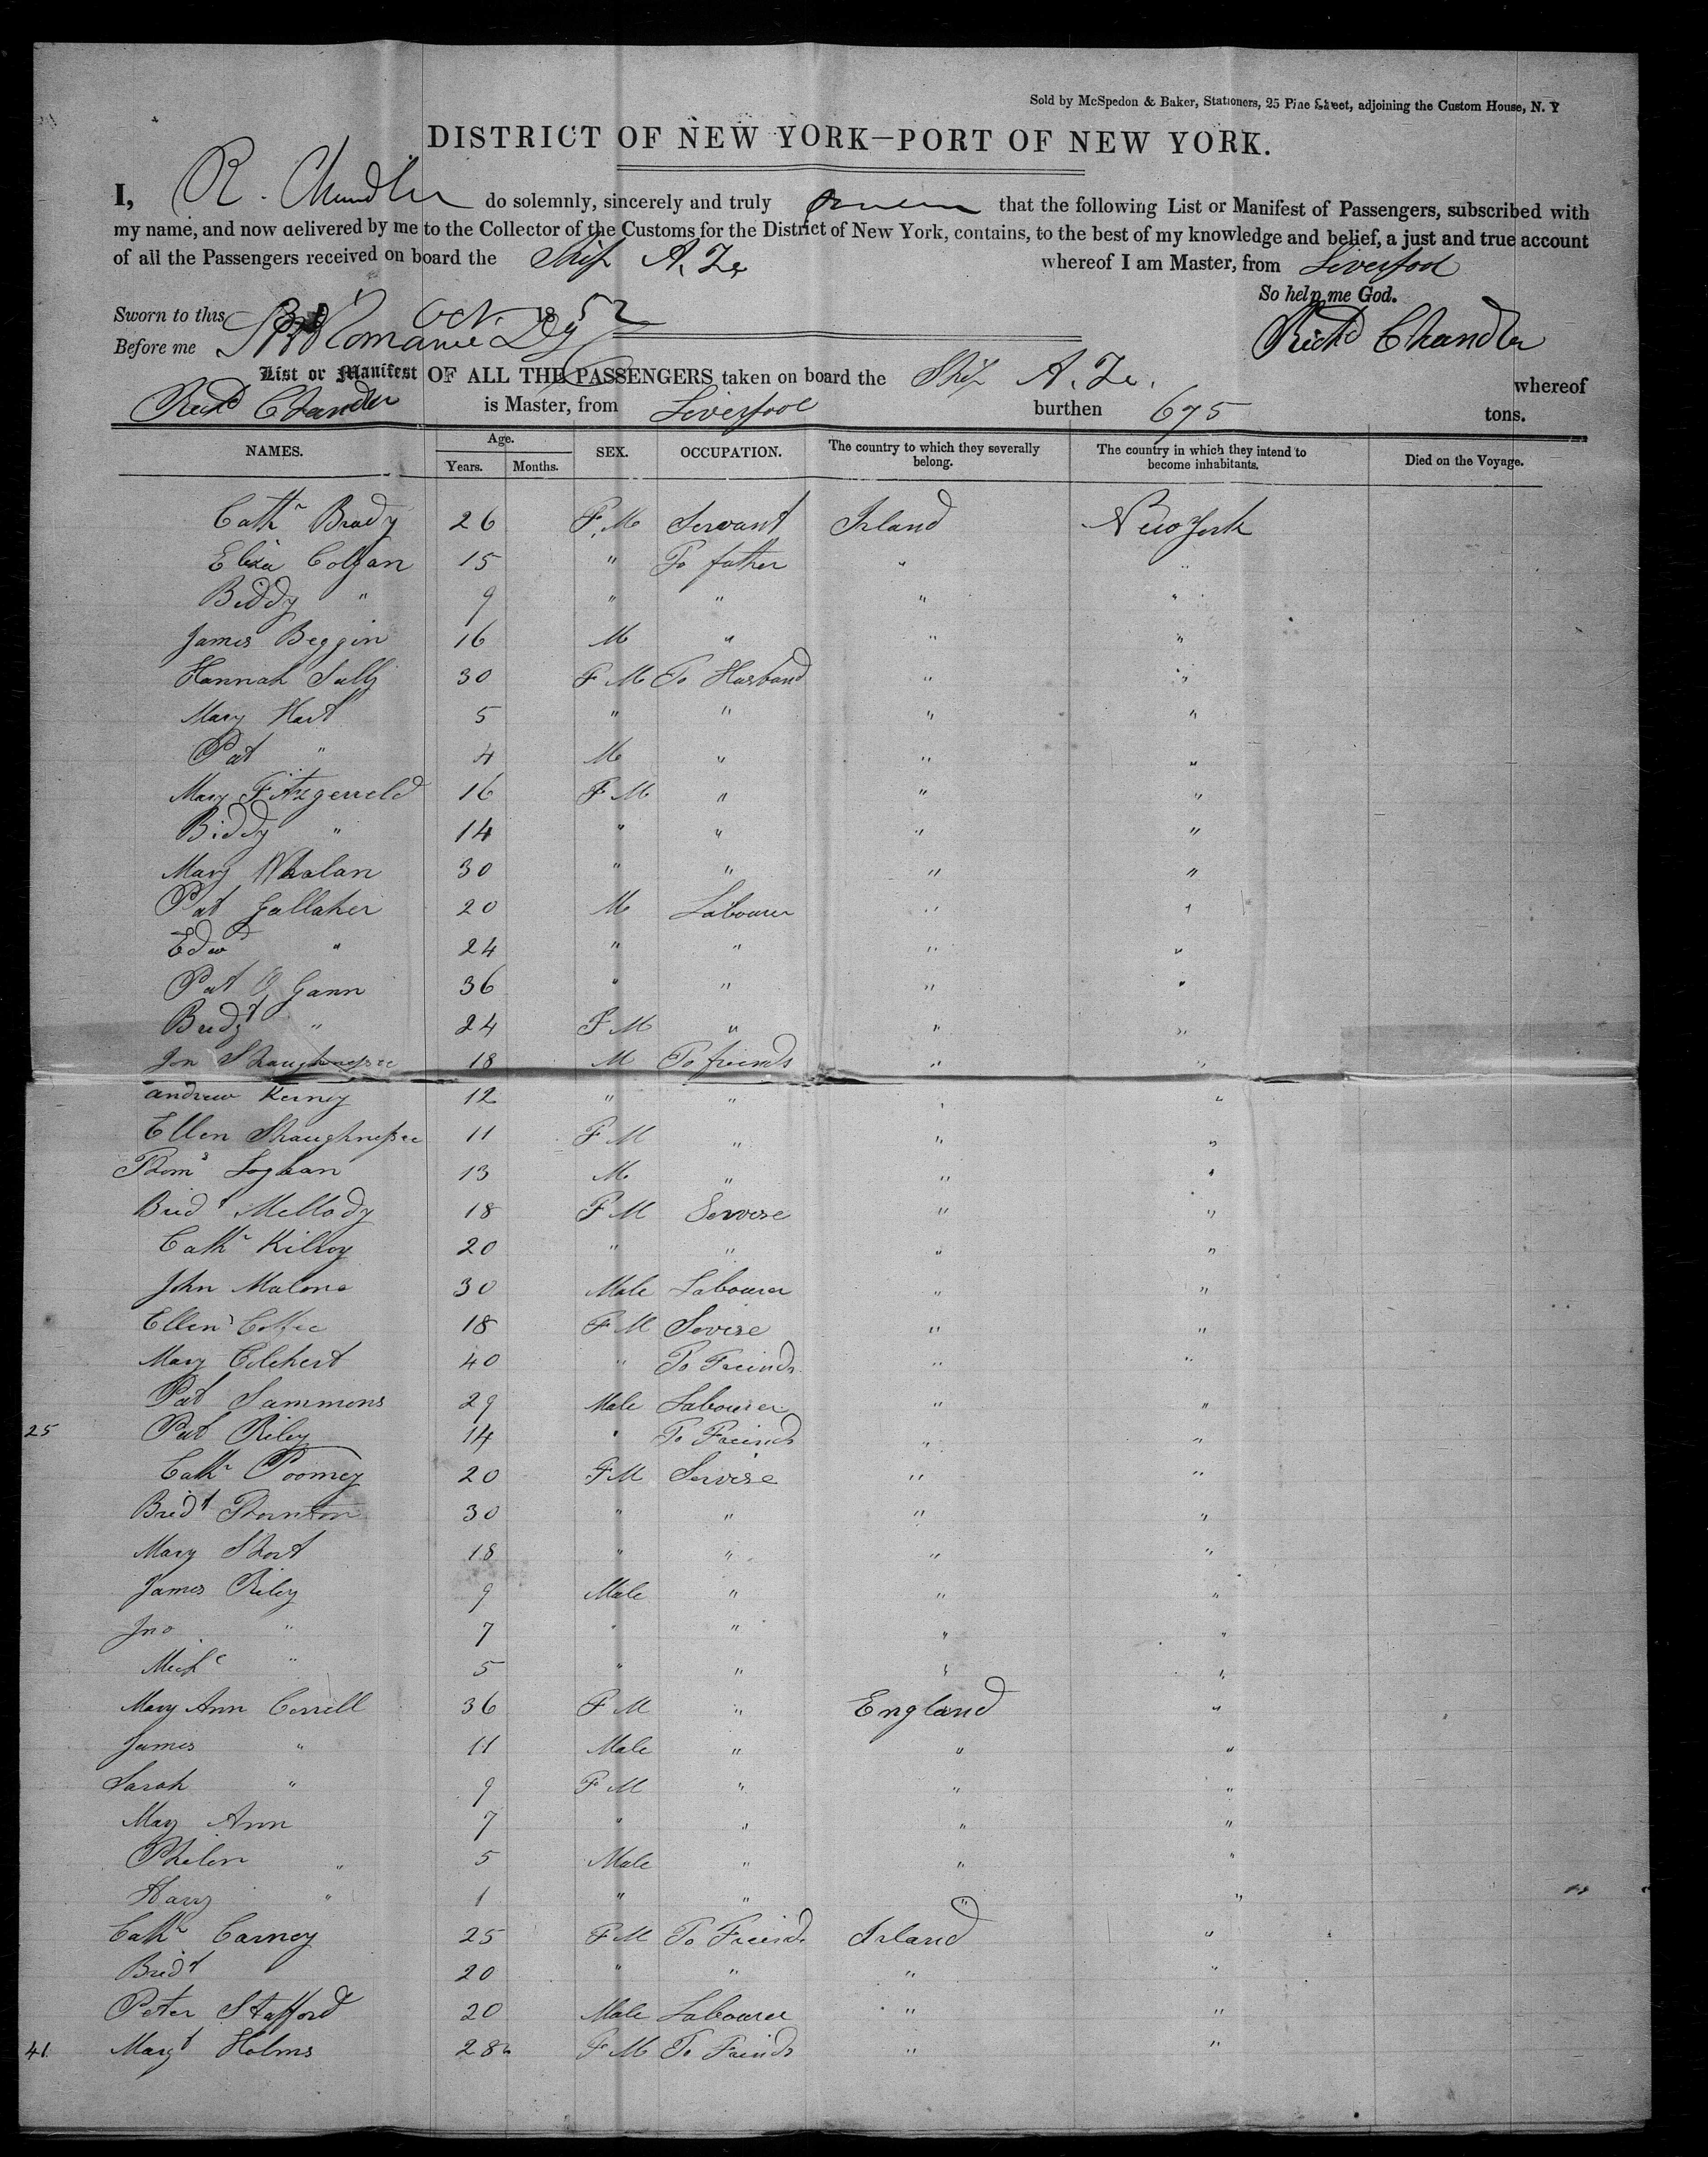 Sold by McSpedon & Baker, Stationers, 25 Pine Street, adjoining the Custom House, N. Y
DISTRICT OF NEW YORK—PORT OF NEW YORK.
I, R. Chandler do solemnly, sincerely and truly swear that the following List or Manifest of Passengers, subscribed with
my name, and now delivered by me to the Collector of the Customs for the District of New York, contains, to the best of my knowledge and belief, a just and true account
of all the Passengers received on board the Ship A. Z. whereof I am Master, from Liverpool
So help me God.
Sworn to this Oct. 1852
Before me
Richd Chandler
List or Manifest OF ALL THE PASSENGERS taken on board the Ship A. Z. whereof
Richd Chandler is Master, from Liverpool burthen 675 tons.
NAMES. Age. Years. Months. SEX. OCCUPATION. The country to which they severally belong. The country in which they intend to become inhabitants. Died on the Voyage.
Cathn Brady 26 F.M Servant Irland New York
Eliza Colgan 15 " To father " "
Biddy " 9 " " " "
James Beggin 16 M " " "
Hannah Sully 30 F M To Husband " "
Mary Hart 5 " " " "
Pat " 4 M " " "
Mary Fitzgerreld 16 F M " " "
Biddy " 14 " " " "
Mary Whalan 30 " " " "
Pat Gallaher 20 M Labourer " "
Edwd " 24 " " " "
Pat O Gann 36 " " " "
Bridgt " 24 F M " " "
Jn Shaughnessee 18 M To friends " "
Andrew Kerney 12 " " " "
Ellen Shaughnessee 11 F M " " "
Thoms Loghan 13 M " " "
Bridt Mellody 18 F M Servise " "
Cathn Killroy 20 " " " "
John Malone 30 Male Labourer " "
Ellen Coffee 18 F M Sevise " "
Mary Colehert 40 " To Freinds " "
Pat Sammons 29 Male Labourer " "
25 Pat Riley 14 " To Freinds " "
Cathn Toomey 20 F M Servise " "
Bridt Thornton 30 " " " "
Mary Short 18 " " " "
James Riley 9 Male " " "
Jno " 7 " " " "
Michl " 5 " " " "
Mary Ann Correll 36 F M " England "
James " 11 Male " " "
Sarah " 9 F M " " "
Mary Ann 7 " " " "
Philim " 5 Male " " "
Harry " 1 " " " "
Cathn Carney 25 F M To Freinds Irland "
Bridt 20 " " " "
Peter Stafford 20 Male Labourer " "
41 Margt Holms 28 F M To Freinds " "